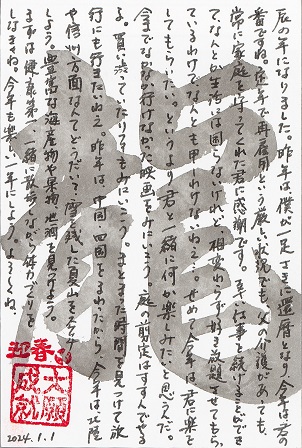 辰の年になりました。昨年は僕が一足さきに還暦となり、今年は君の
番ですね。定年で再雇用という厳しい状況でも、父の介護があっても、
常に家庭を守ってくれた君に感謝です。互い仕事を続けることができ
て、なんとか生活は困らないけれど、相変わらず好き放題させてもら
っているわけでなんとも申しわけないねえ…せめて今年は君に楽を
してもらいたい。というより君と一緒に何か楽しみたいと思うんだ
今までなかなか行けなかった映画をみにいこう。庭の剪定はすすんでやる
よ。買い物だっていつでもいこう。まとまった時間を見つけて旅
行にも行きたいねえ。昨年は、中国四国をまわったから、今年は北陸
や信州方面なんてどうだい?雪の残った夏山をながめ
しょう。豊富な海産物や果物、地酒を見けよう。
まずは健康第一、一緒に散歩しながら体力づくりを
しなきゃね。今年も楽しい一年にしよう。よろしくね。
迎春
大願
成就
2024.1.1